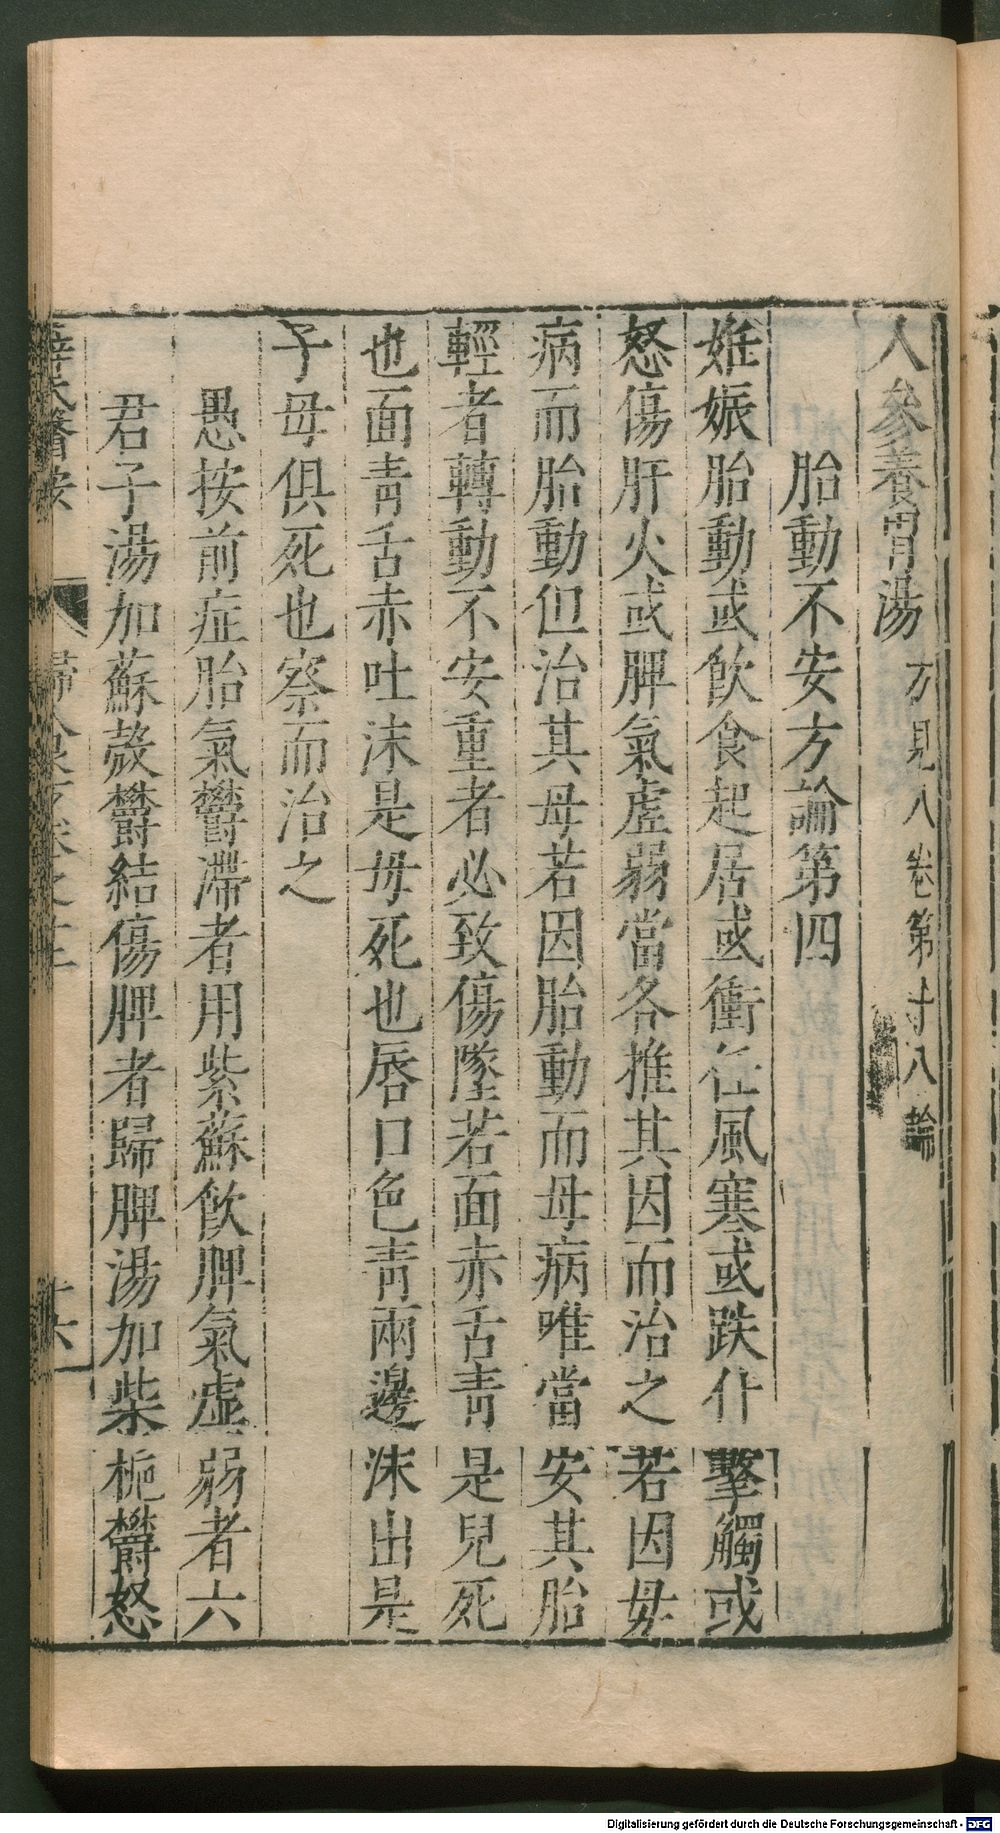 人參養胃湯 方見八卷第十八論
胎動不安方論第四
妊娠胎動或飲食起居或衝任風寒或跌仆擊觸或
怒傷肝火或脾氣虛弱當各推其因而治之若因母
病而胎動但治其母若因胎動而母病唯當安其胎
輕者轉動不安重者必致傷墜若面赤舌青是兒死
也面青舌赤吐沫是母死也唇口色青兩邊沫出是
子母俱死也察而治之
愚按前症胎氣鬱滯者用紫蘇飲脾氣虛弱者六
君子湯加蘇殼鬱結傷脾者歸脾湯加柴梔鬱怒
Digitalisierung gefördert durch die Deutsche Forschungsgemeinschaft - DFG